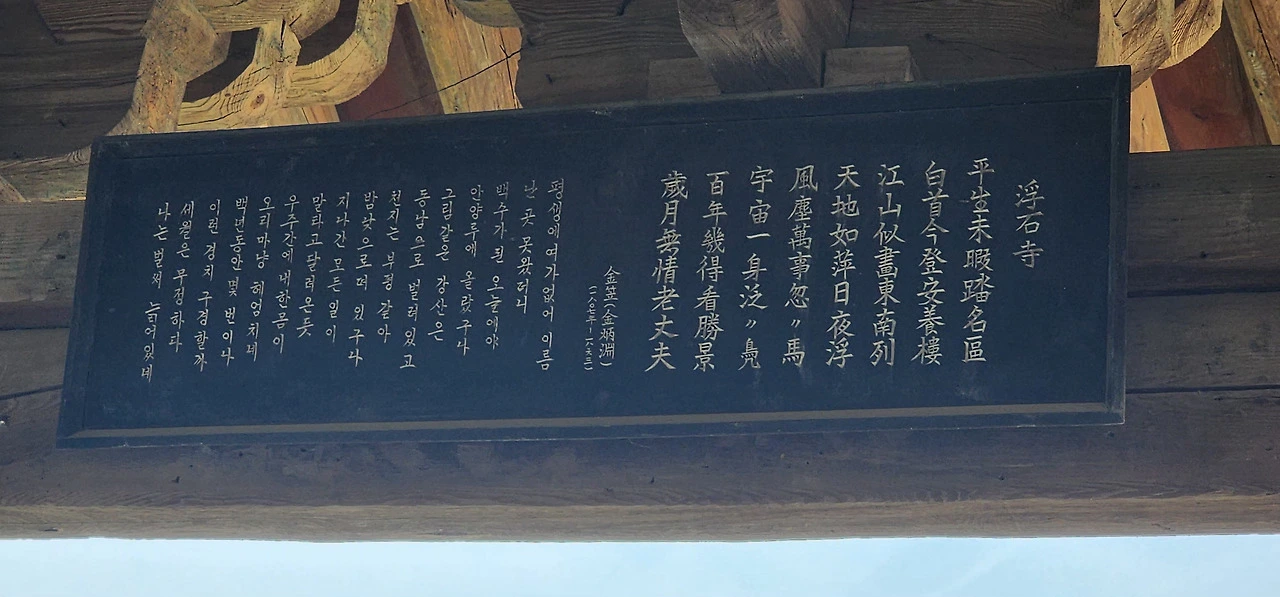 浮石寺
平生未暇踏名區
白首今登安養樓
江山似畵東南列
天地如萍日夜浮
風塵萬事忽〃馬
宇宙一身泛〃鳧
百年幾得看勝景
歲月無情老丈夫
金笠(金炳淵)
(一八〇七年-一八六三)
평생에 여가 없어 이름
난 곳 못 왔더니
백수가 된 오늘에야
안양루에 올랐구나
그림 같은 강산은
동남으로 벌려 있고
천지는 부평 같아
밤낮으로 떠 있구나
지나간 모든 일이
말타고 달려온 듯
우주간에 내 한 몸이
오리마냥 헤엄치네
백년동안 몇 번이나
이런 경치 구경할까
세월은 무정하다
나는 벌써 늙어있네